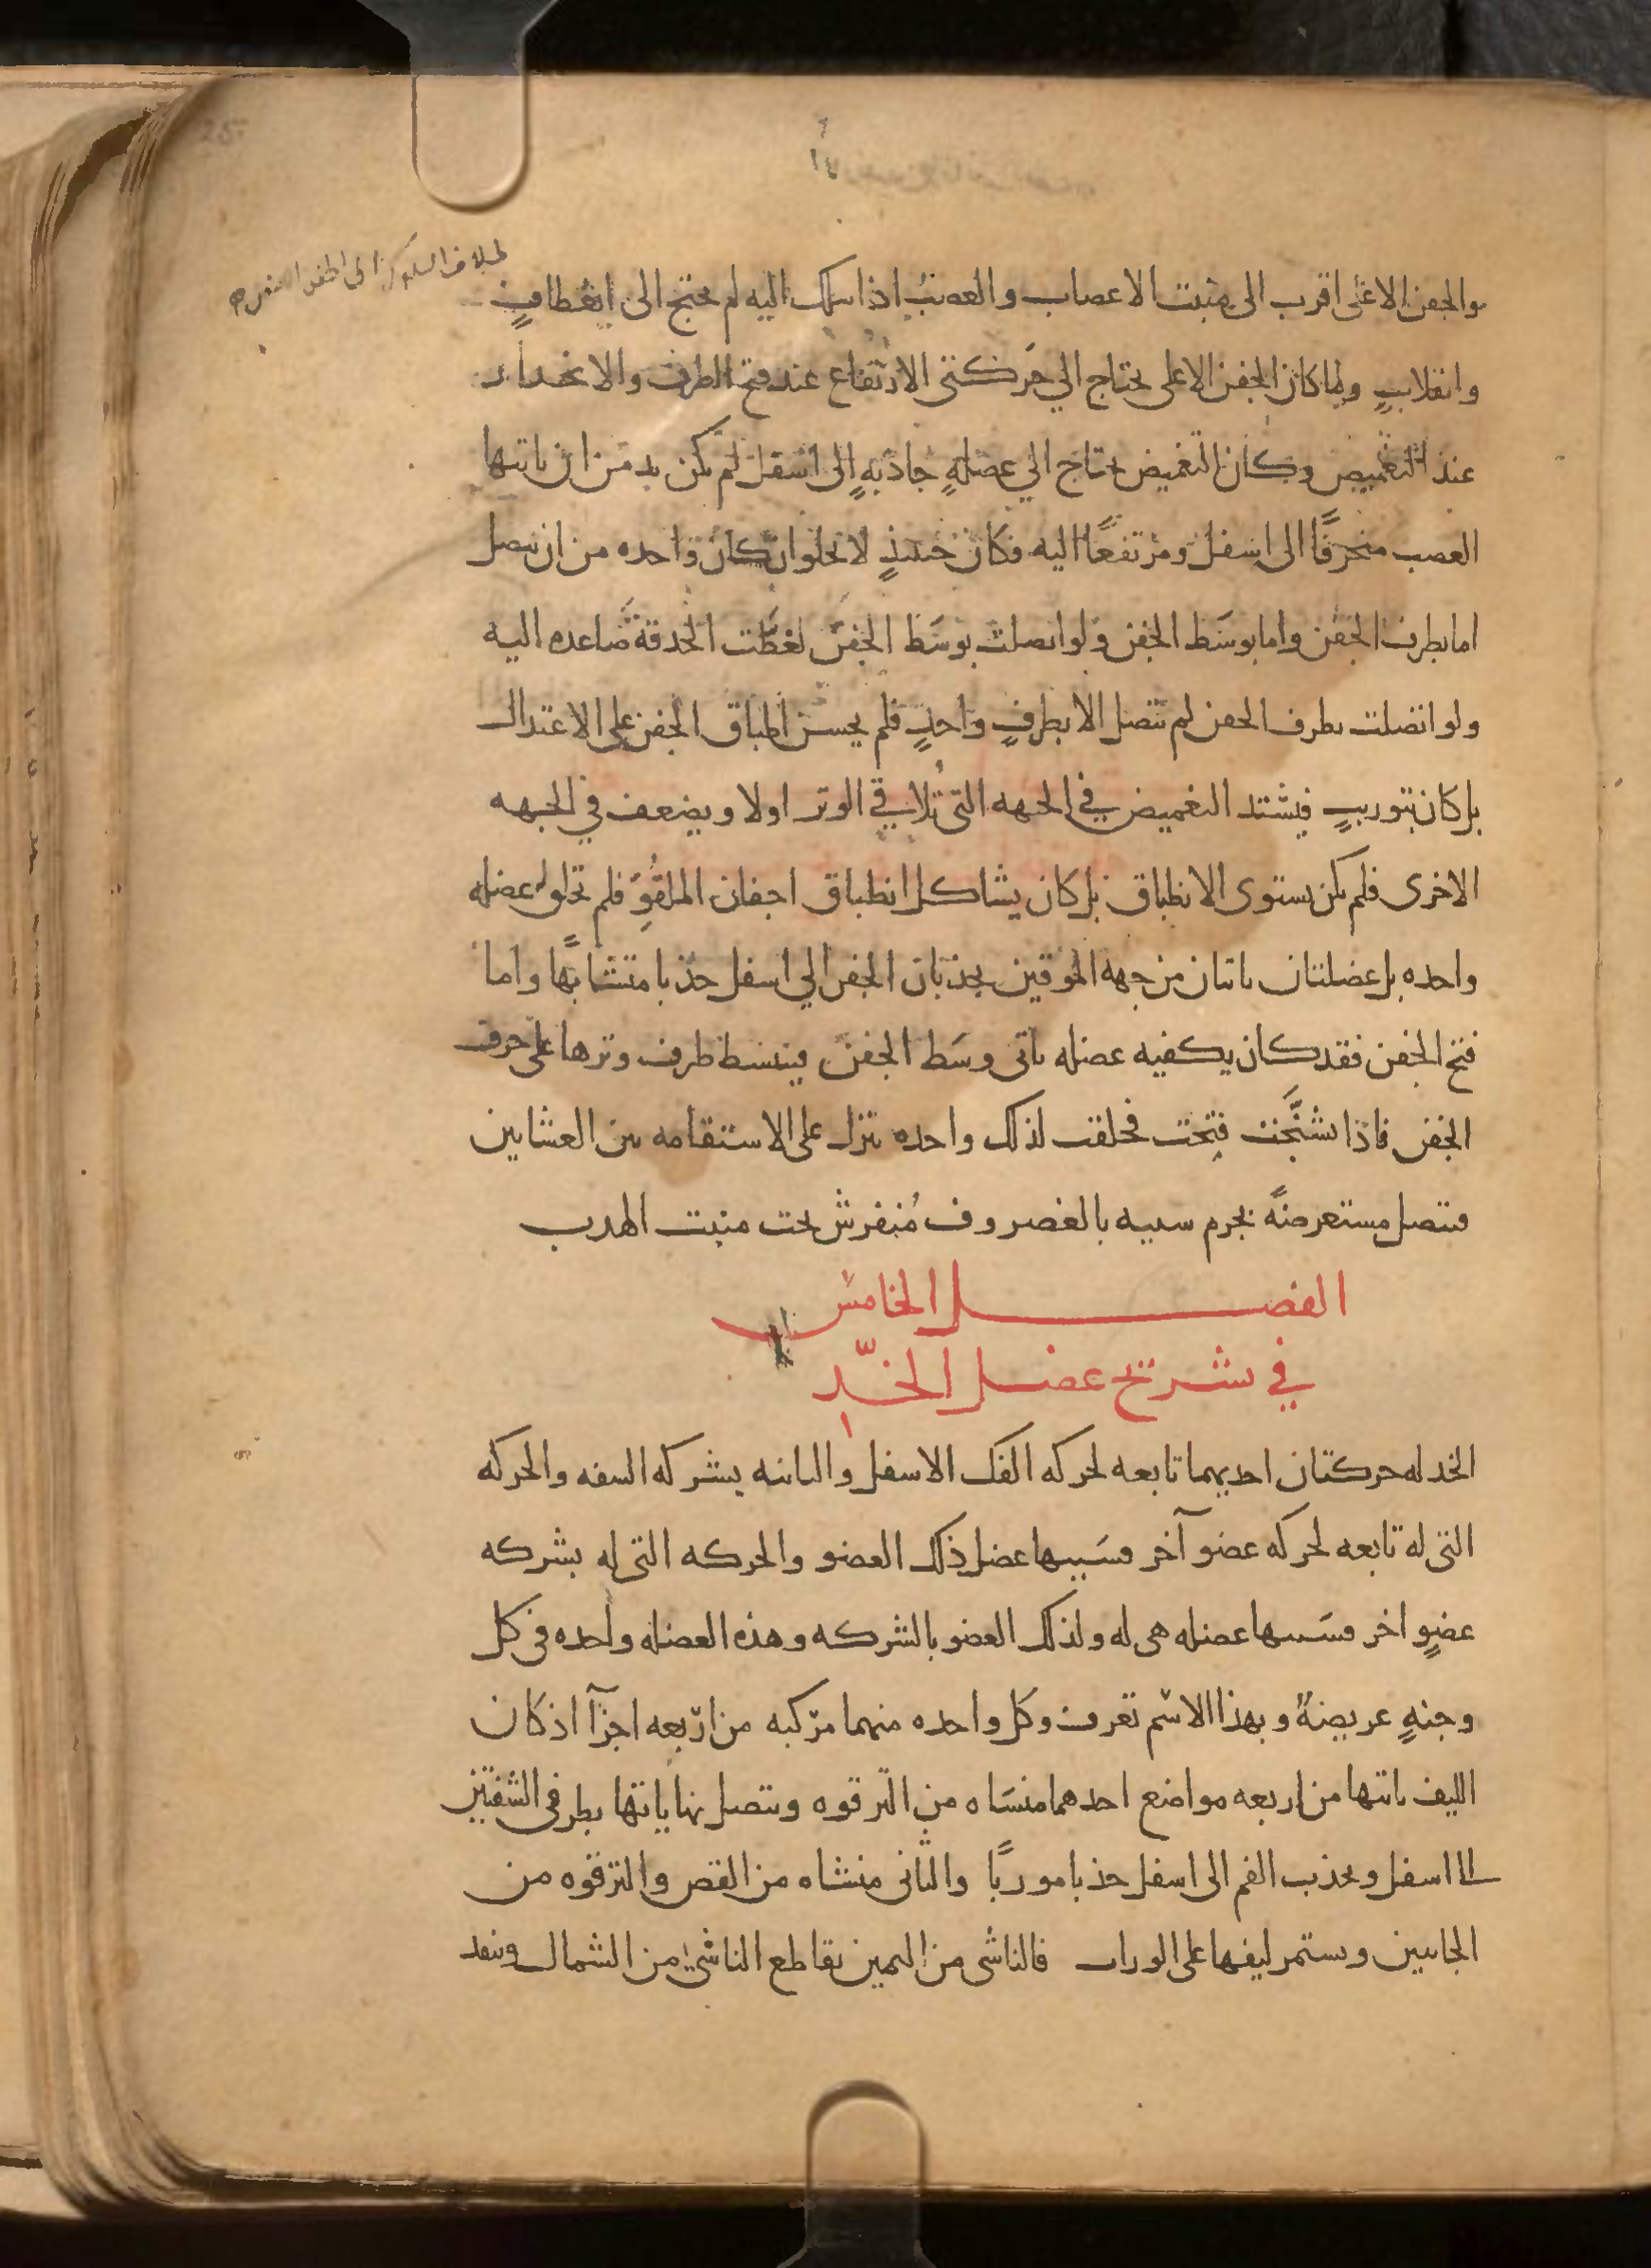 والجفن الاعلى اقرب الى منبت الاعصاب والعصب اذا سلك اليه لم يحتج الى انعطافٍ
وانقلابٍ ولما كان الجفن الاعلى يحتاج الي حَركتى الارتفاع عند فتح الطرف والانحدار
عند التغميض وكان التغميض يحتاج الي عضلهٍ جاذبهٍ الى اسفل لم يكن بد من ان ياتيها
العصب منحرفًا الى اسفل ومرتفعًا اليه فكان حينئذٍ لا يخلوا ان كان واحده من ان تتصل
اما بطرف الجفن واما بوسَط الجفن ولو اتصلت بوسَط الجفن لغطّت الحدقة صاعده اليه
ولو اتصلت بطرف الجفن لم تتصل الا بطرفٍ واحدٍ فلم يحسن اطباق الجفن على الاعتدال
بل كان بتوريبٍ فيشتد التغميض في الجهه التى تُلاقي الوتر اولا ويضعف في الجهه
الاخرى فلم يكن يستوى الانطباق بل كان يشاكل انطباق اجفان الملقُوِّ فلم تخلق عضله
واحده بل عضلتان ياتيان من جهه الموقين يجذبان الجفن الي اسفل جذبا متشابهًا واما
فتح الجفن فقد كان يكفيه عضله ياتى وسَط الجفن فينبسط طرف وترها على حرف
الجفن فاذا تشنَّجت فتحت فخلقت لذلك واحده تنزل على الاستقامه بين الغشايين
فتتصل مستعرضةً بجرم شبيه بالغضروف مُنفرش تحت منبت الهدب
الفصل الخامس
في تشريح عضل الخدّ
الخد له حركتان احديهما تابعه لحركه الفك الاسفل والثانيه بشركه الشفه والحركه
التى له تابعه لحركه عضو آخر فسَببها عضل ذلك العضو والحركه التى له بشركه
عضوٍ اخر فسَببها عضله هى له ولذلك العضو بالشركه وهذه العضله واحده فى كل
وجنهٍ عريضةٌ وبهذا الاسم تعرف وكل واحده منهما مركبه من اربعه اجزآ اذ كان
الليف ياتيها من اربعه مواضع احدهما منشَاه من الترقوه وتتصل نهاياتها بطرفى الشفتين
الى اسفل ويجذب الفم الى اسفل جذبا موربًا والثانى منشاه من القص والترقوه من
الجانبين ويستمر ليفها على الوراب فالناشى من اليمين يقاطع الناشئ من الشمال وينفد